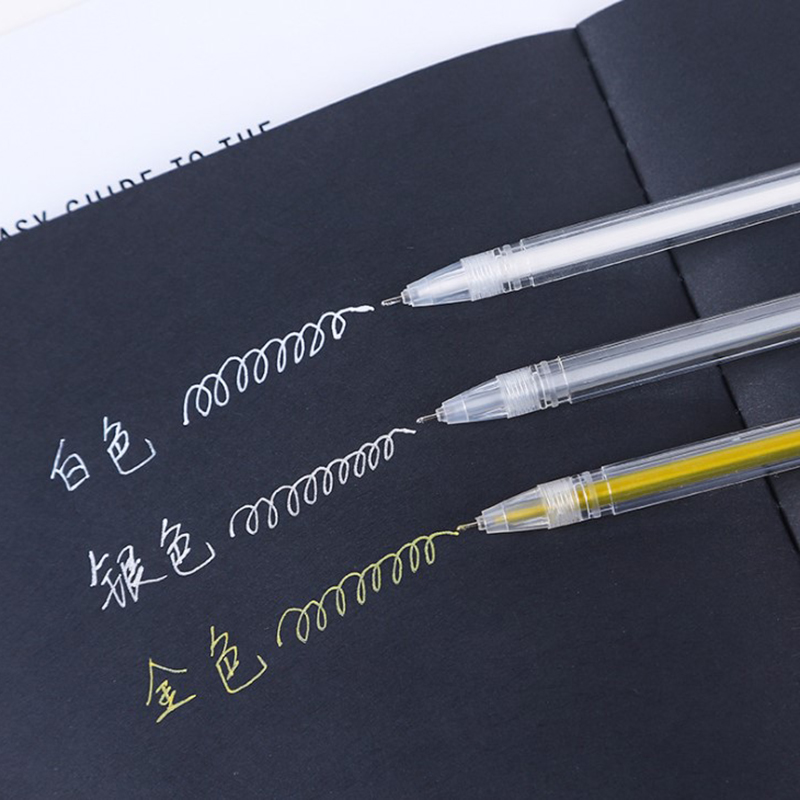 EASY GUIDE TO THE
白色
银色
金色